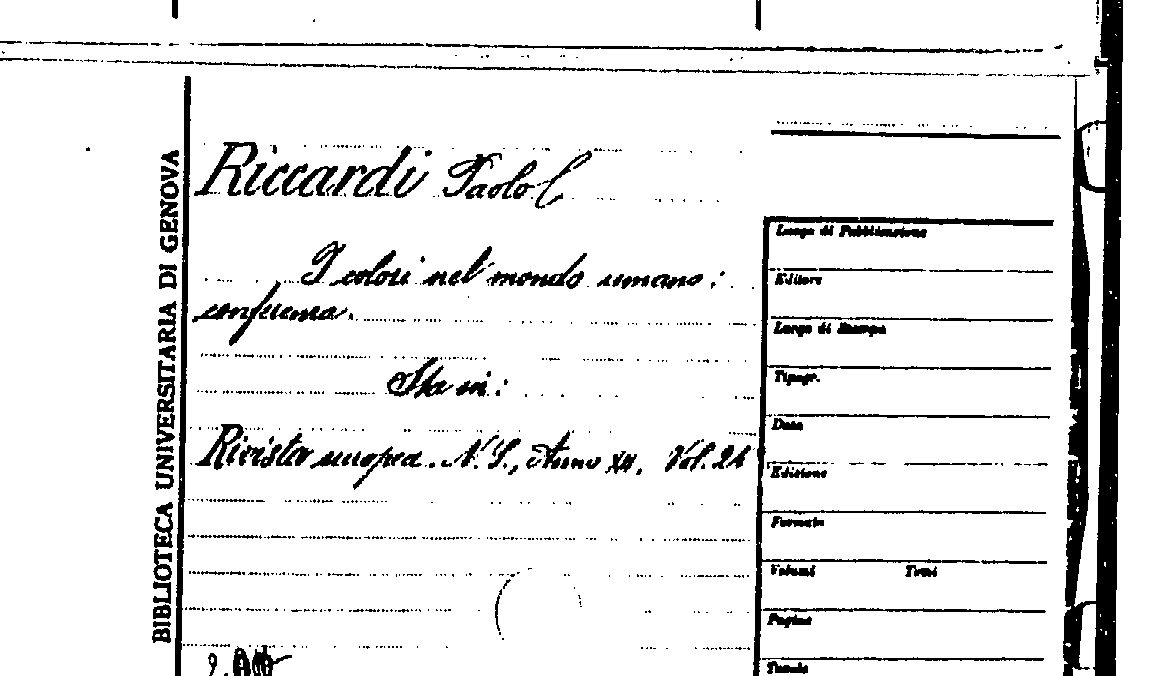 BIBLIOTECA UNIVERSITARIA DI GENOVA
Riccardi Paolo
I colori nel mondo umano:
conferenza.
Sta in:
Rivista europea. N. S., Anno XII, Vol. 21
Luogo di Pubblicazione
Editore
Luogo di Stampa
Tipogr.
Data
Edizione
Formato
Volumi Tomi
Pagine
Tavole